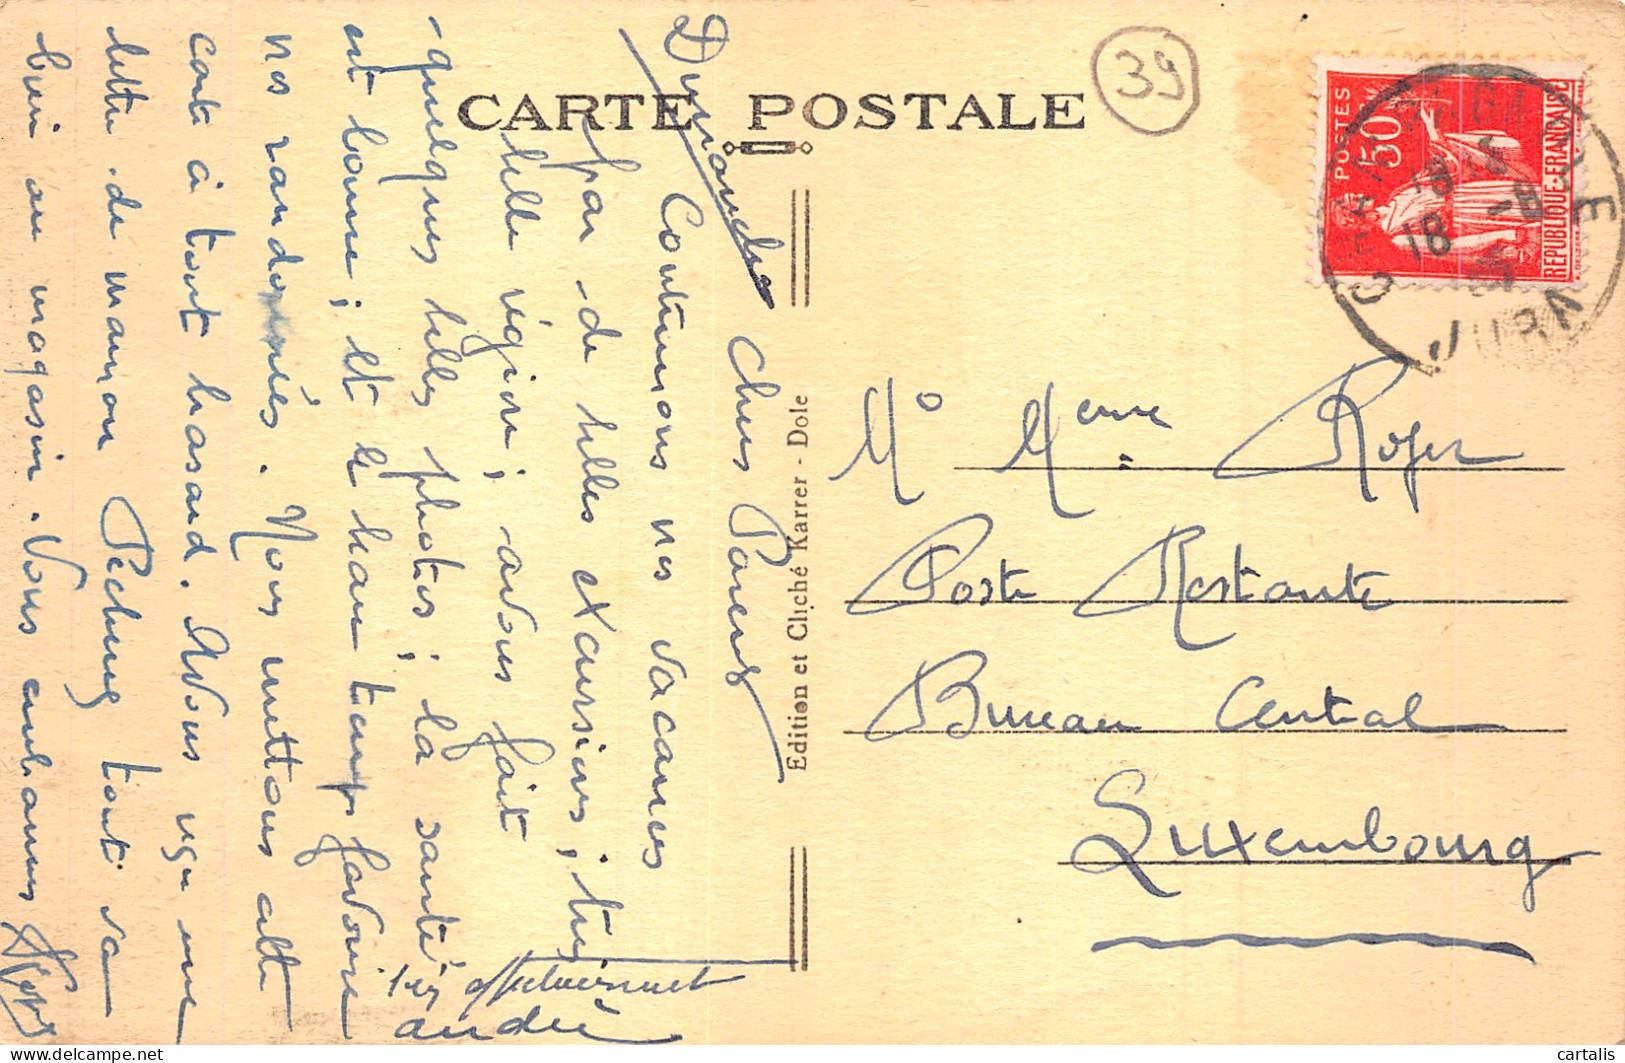 CARTE POSTALE
39
POSTES
50
REPUBLIQUE-FRANÇAISE
18
JURA
Edition et Cliché Karrer - Dole
Dimanche
Chers Parents
Continuons nos vacances
par de belles excursions; très
belle région; avons fait
quelques belles photos; la santé
est bonne; et le beau temps favorise
nos randonnés. Nous mettons cette
carte à tout hasard. Avons reçu une
lettre de maman Pecheug tout va
bien au magasin. Vous embrassons
très affectueusement
andrée
Mr Meme Roger
Poste Restante
Bureau Central
Luxembourg
cartalis